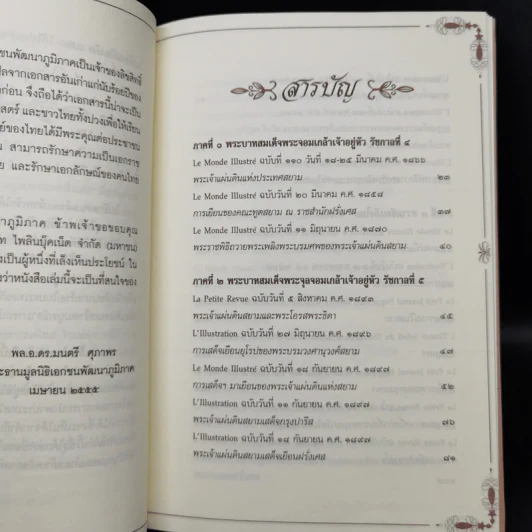 ชนพัฒนาภูมิภาคเป็นเจ้าของลิขสิทธิ์
ลจากเอกสารอันเก่าแก่นับร้อยปีของ
ก่อน จึงถือได้ว่าเอกสารนี้น่าจะเป็น
สตร์ และชาวไทยทั้งปวงเพื่อให้เรียน
ย์ของไทยได้มีพระคุณต่อประชาชน
น สามารถรักษาความเป็นเอกราช
ย และรักษาเอกลักษณ์ของคนไทย
าภูมิภาค ข้าพเจ้าขอขอบคุณ
ท ไพลินบุ๊คเน็ต จำกัด (มหาชน)
เป็นผู้หนึ่งที่เล็งเห็นประโยชน์ ใน
ว่าหนังสือเล่มนี้จะเป็นที่สนใจของ
พล.อ.ดร.มนตรี ศุภาพร
ะธานมูลนิธิเอกชนพัฒนาภูมิภาค
เมษายน ๒๕๕๕
สารบัญ
ภาคที่ ๑ พระบาทสมเด็จพระจอมเกล้าเจ้าอยู่หัว รัชกาลที่ ๔
Le Monde Illustré ฉบับที่ ๑๑๐ วันที่ ๑๘-๒๕ มีนาคม ค.ศ. ๑๘๖๖
พระเจ้าแผ่นดินแห่งประเทศสยาม ๒๓
Le Monde Illustré ฉบับวันที่ ๒๐ มีนาคม ค.ศ. ๑๘๕๘
การเยือนของคณะทูตสยาม ณ ราชสำนักฝรั่งเศส ๓๗
Le Monde Illustré ฉบับวันที่ ๑๑ มิถุนายน ค.ศ. ๑๘๗๐
พระราชพิธีถวายพระเพลิงพระบรมศพของพระเจ้าแผ่นดินสยาม ๔๐
ภาคที่ ๒ พระบาทสมเด็จพระจุลจอมเกล้าเจ้าอยู่หัว รัชกาลที่ ๕
La Petite Revue ฉบับวันที่ ๕ สิงหาคม ค.ศ. ๑๘๙๓
พระเจ้าแผ่นดินสยามและพระโอรสพระธิดา ๔๕
L'Illustration ฉบับวันที่ ๒๗ มิถุนายน ค.ศ. ๑๘๙๖
การเสด็จเยือนยุโรปของพระบรมวงศานุวงศ์สยาม ๔๗
Le Monde Illustré ฉบับวันที่ ๑๘ กันยายน ค.ศ. ๑๘๙๗
การเสด็จฯ มาเยือนของพระเจ้าแผ่นดินแห่งสยาม ๕๒
L'Illustration ฉบับวันที่ ๑๑ กันยายน ค.ศ. ๑๘๙๗
พระเจ้าแผ่นดินสยามเสด็จกรุงปารีส ๗๖
L'Illustration ฉบับวันที่ ๑๘ กันยายน ค.ศ. ๑๘๙๗
พระเจ้าแผ่นดินสยามเสด็จเยือนฝรั่งเศส ๘๑